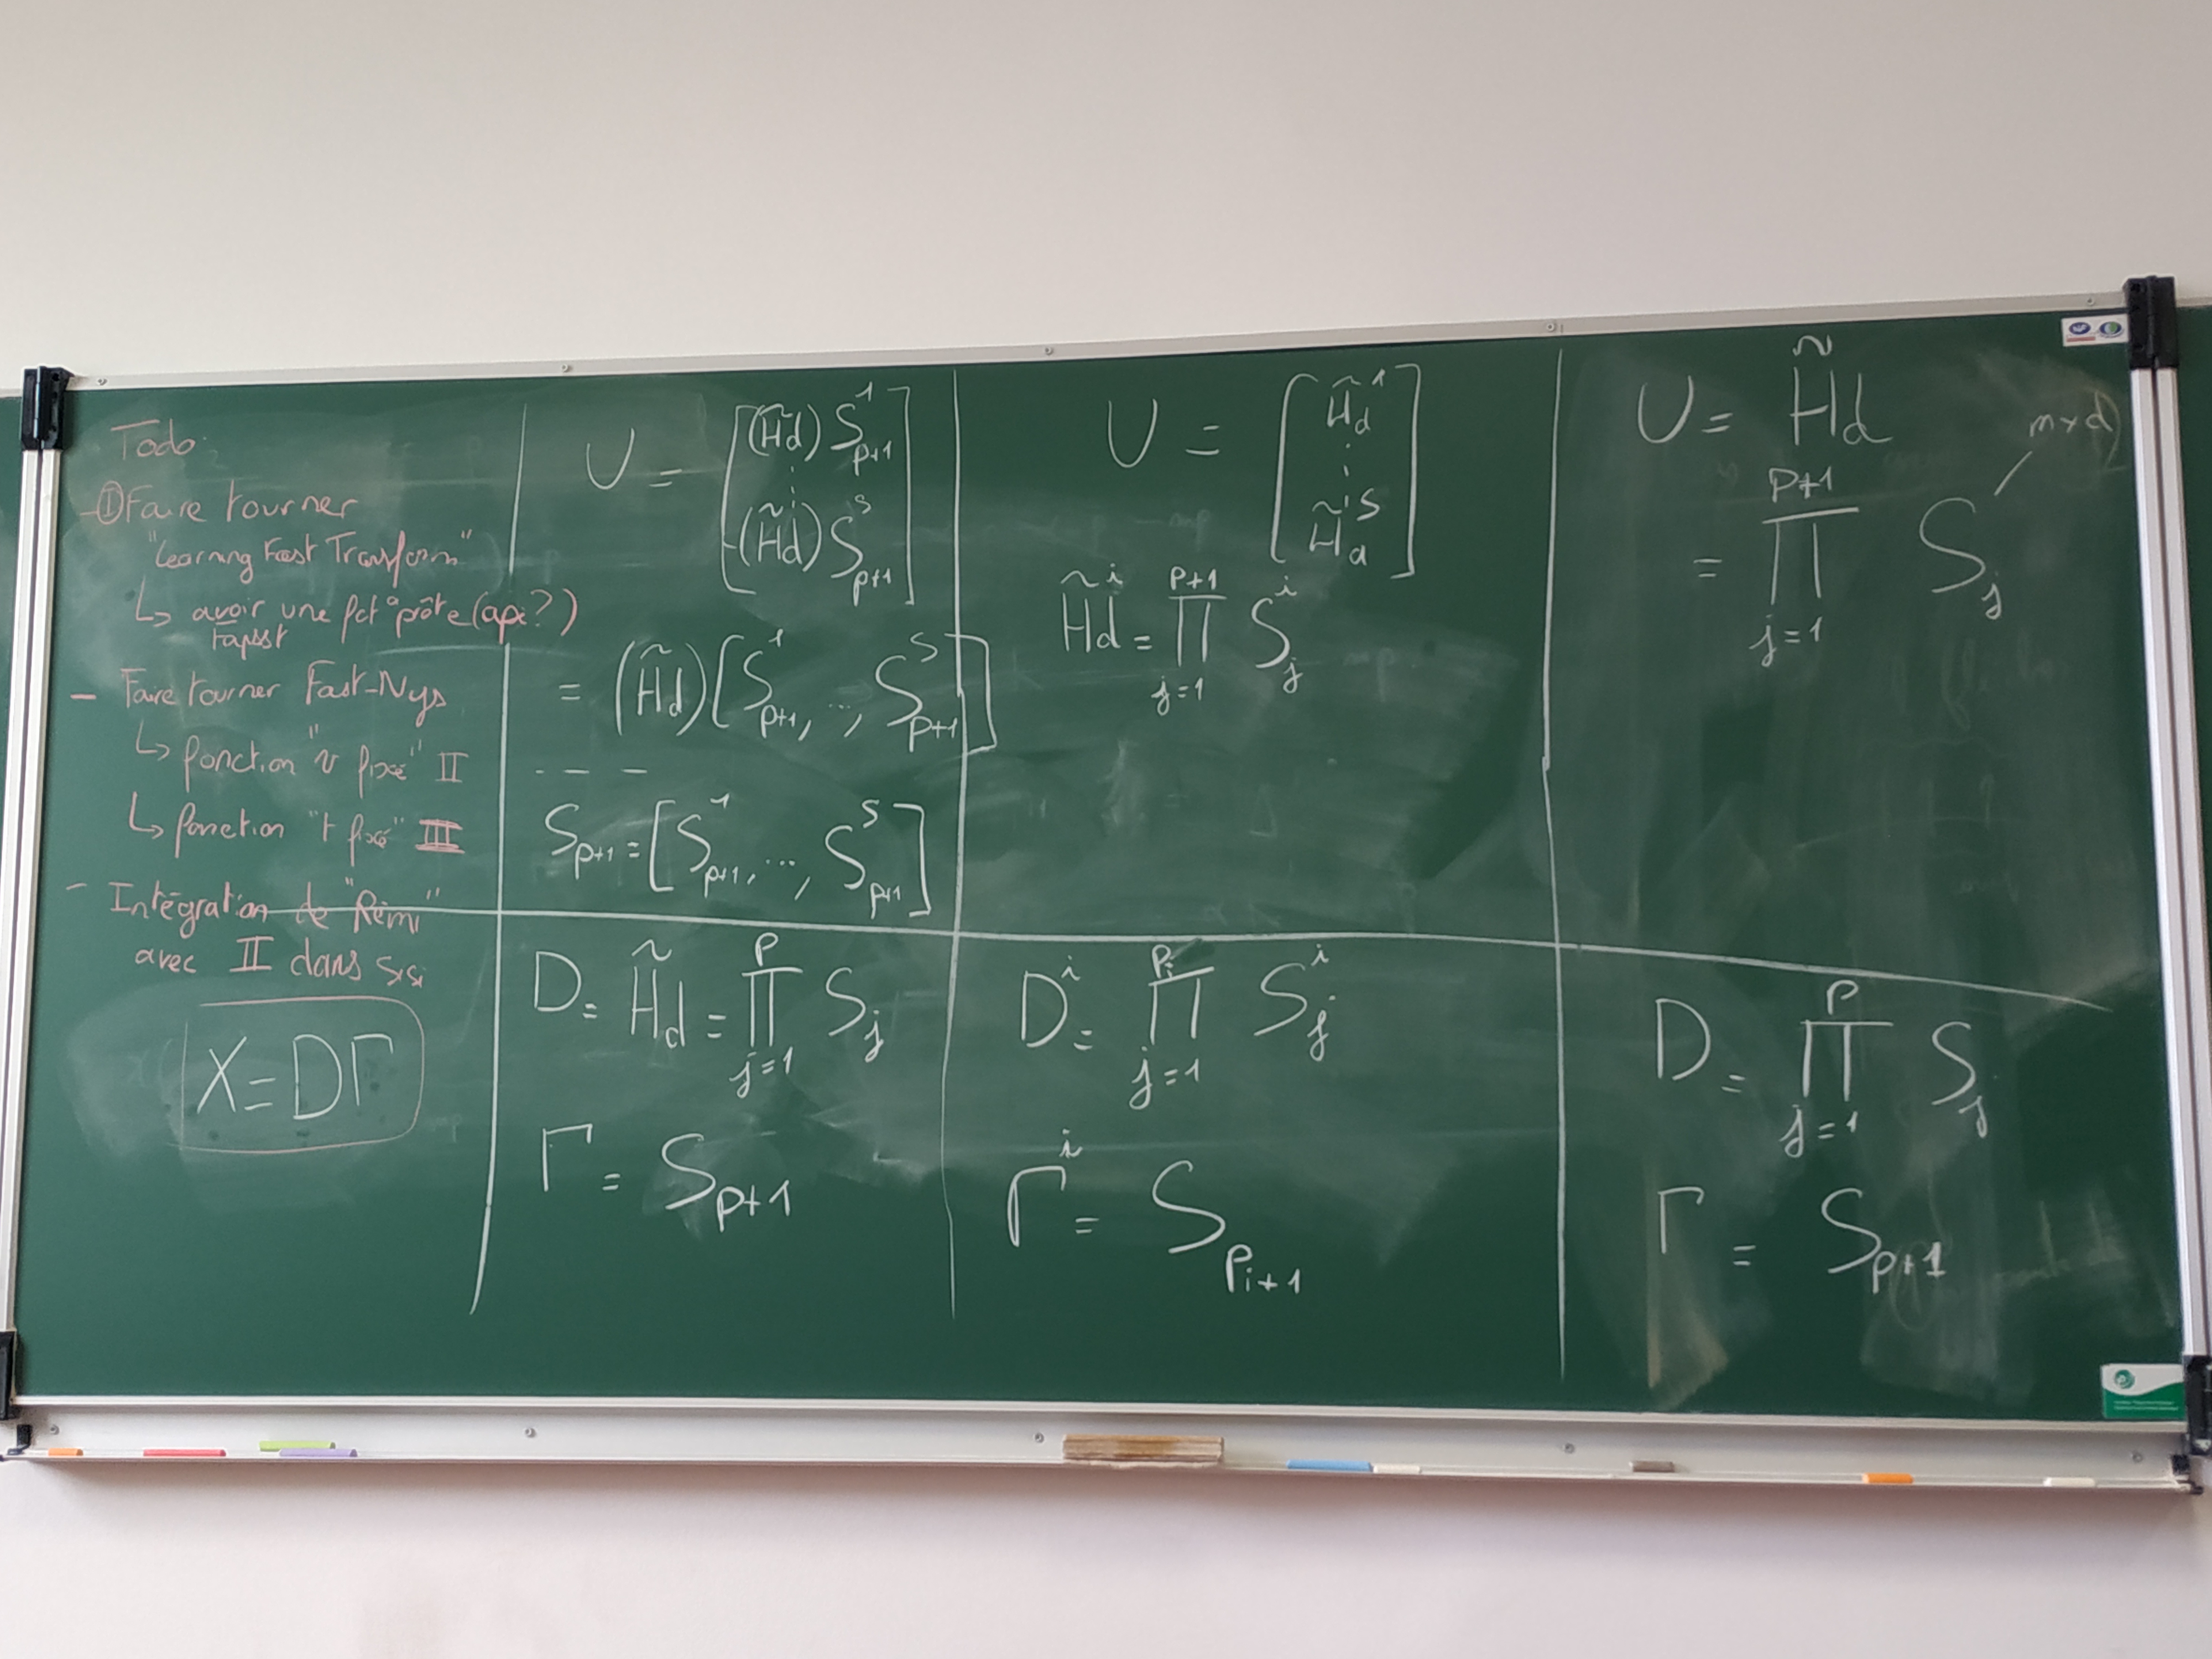 Todo
- ① Faire tourner
"Learning Fast Transform"
↳ avoir une fct prête (api?)
- Faire tourner Fast-Nys
↳ fonction "v fixé" II
↳ fonction "t fixé" III
- Intégration de "Rémi"
avec II dans
X = DΓ
U = [(H̃d) S^1_{p+1} ⋮ (H̃d) S^s_{p+1}]
= (H̃d) [S^1_{p+1}, ..., S^s_{p+1}]
- - -
S_{p+1} = [S^1_{p+1}, ..., S^s_{p+1}]
D = H̃d = ∏_{j=1}^{p} S_j
Γ = S_{p+1}
U = [H̃_d^1 ⋮ H̃_d^s]
H̃d^i = ∏_{j=1}^{p+1} S_j^i
D^i = ∏_{j=1}^{p_i} S_j^i
Γ^i = S_{p_i+1}
U = H̃d
= ∏_{j=1}^{p+1} S_j
m×d
D = ∏_{j=1}^{p} S_j
Γ = S_{p+1}